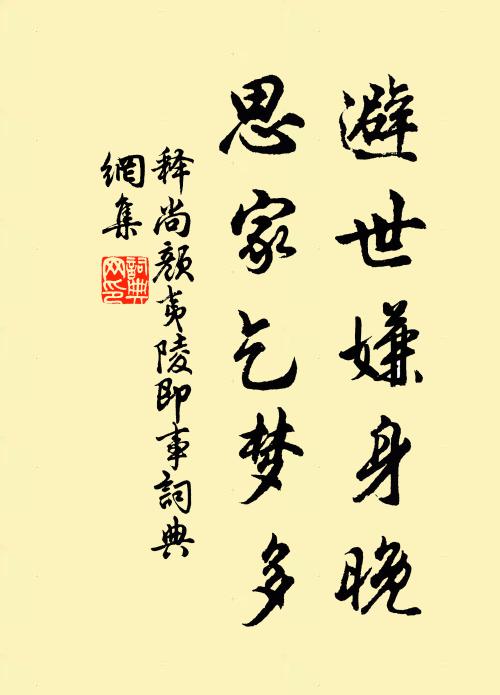 避世嫌身晚
思家乞梦多
释尚颜夷陵即事詞典
網集
詞典網印